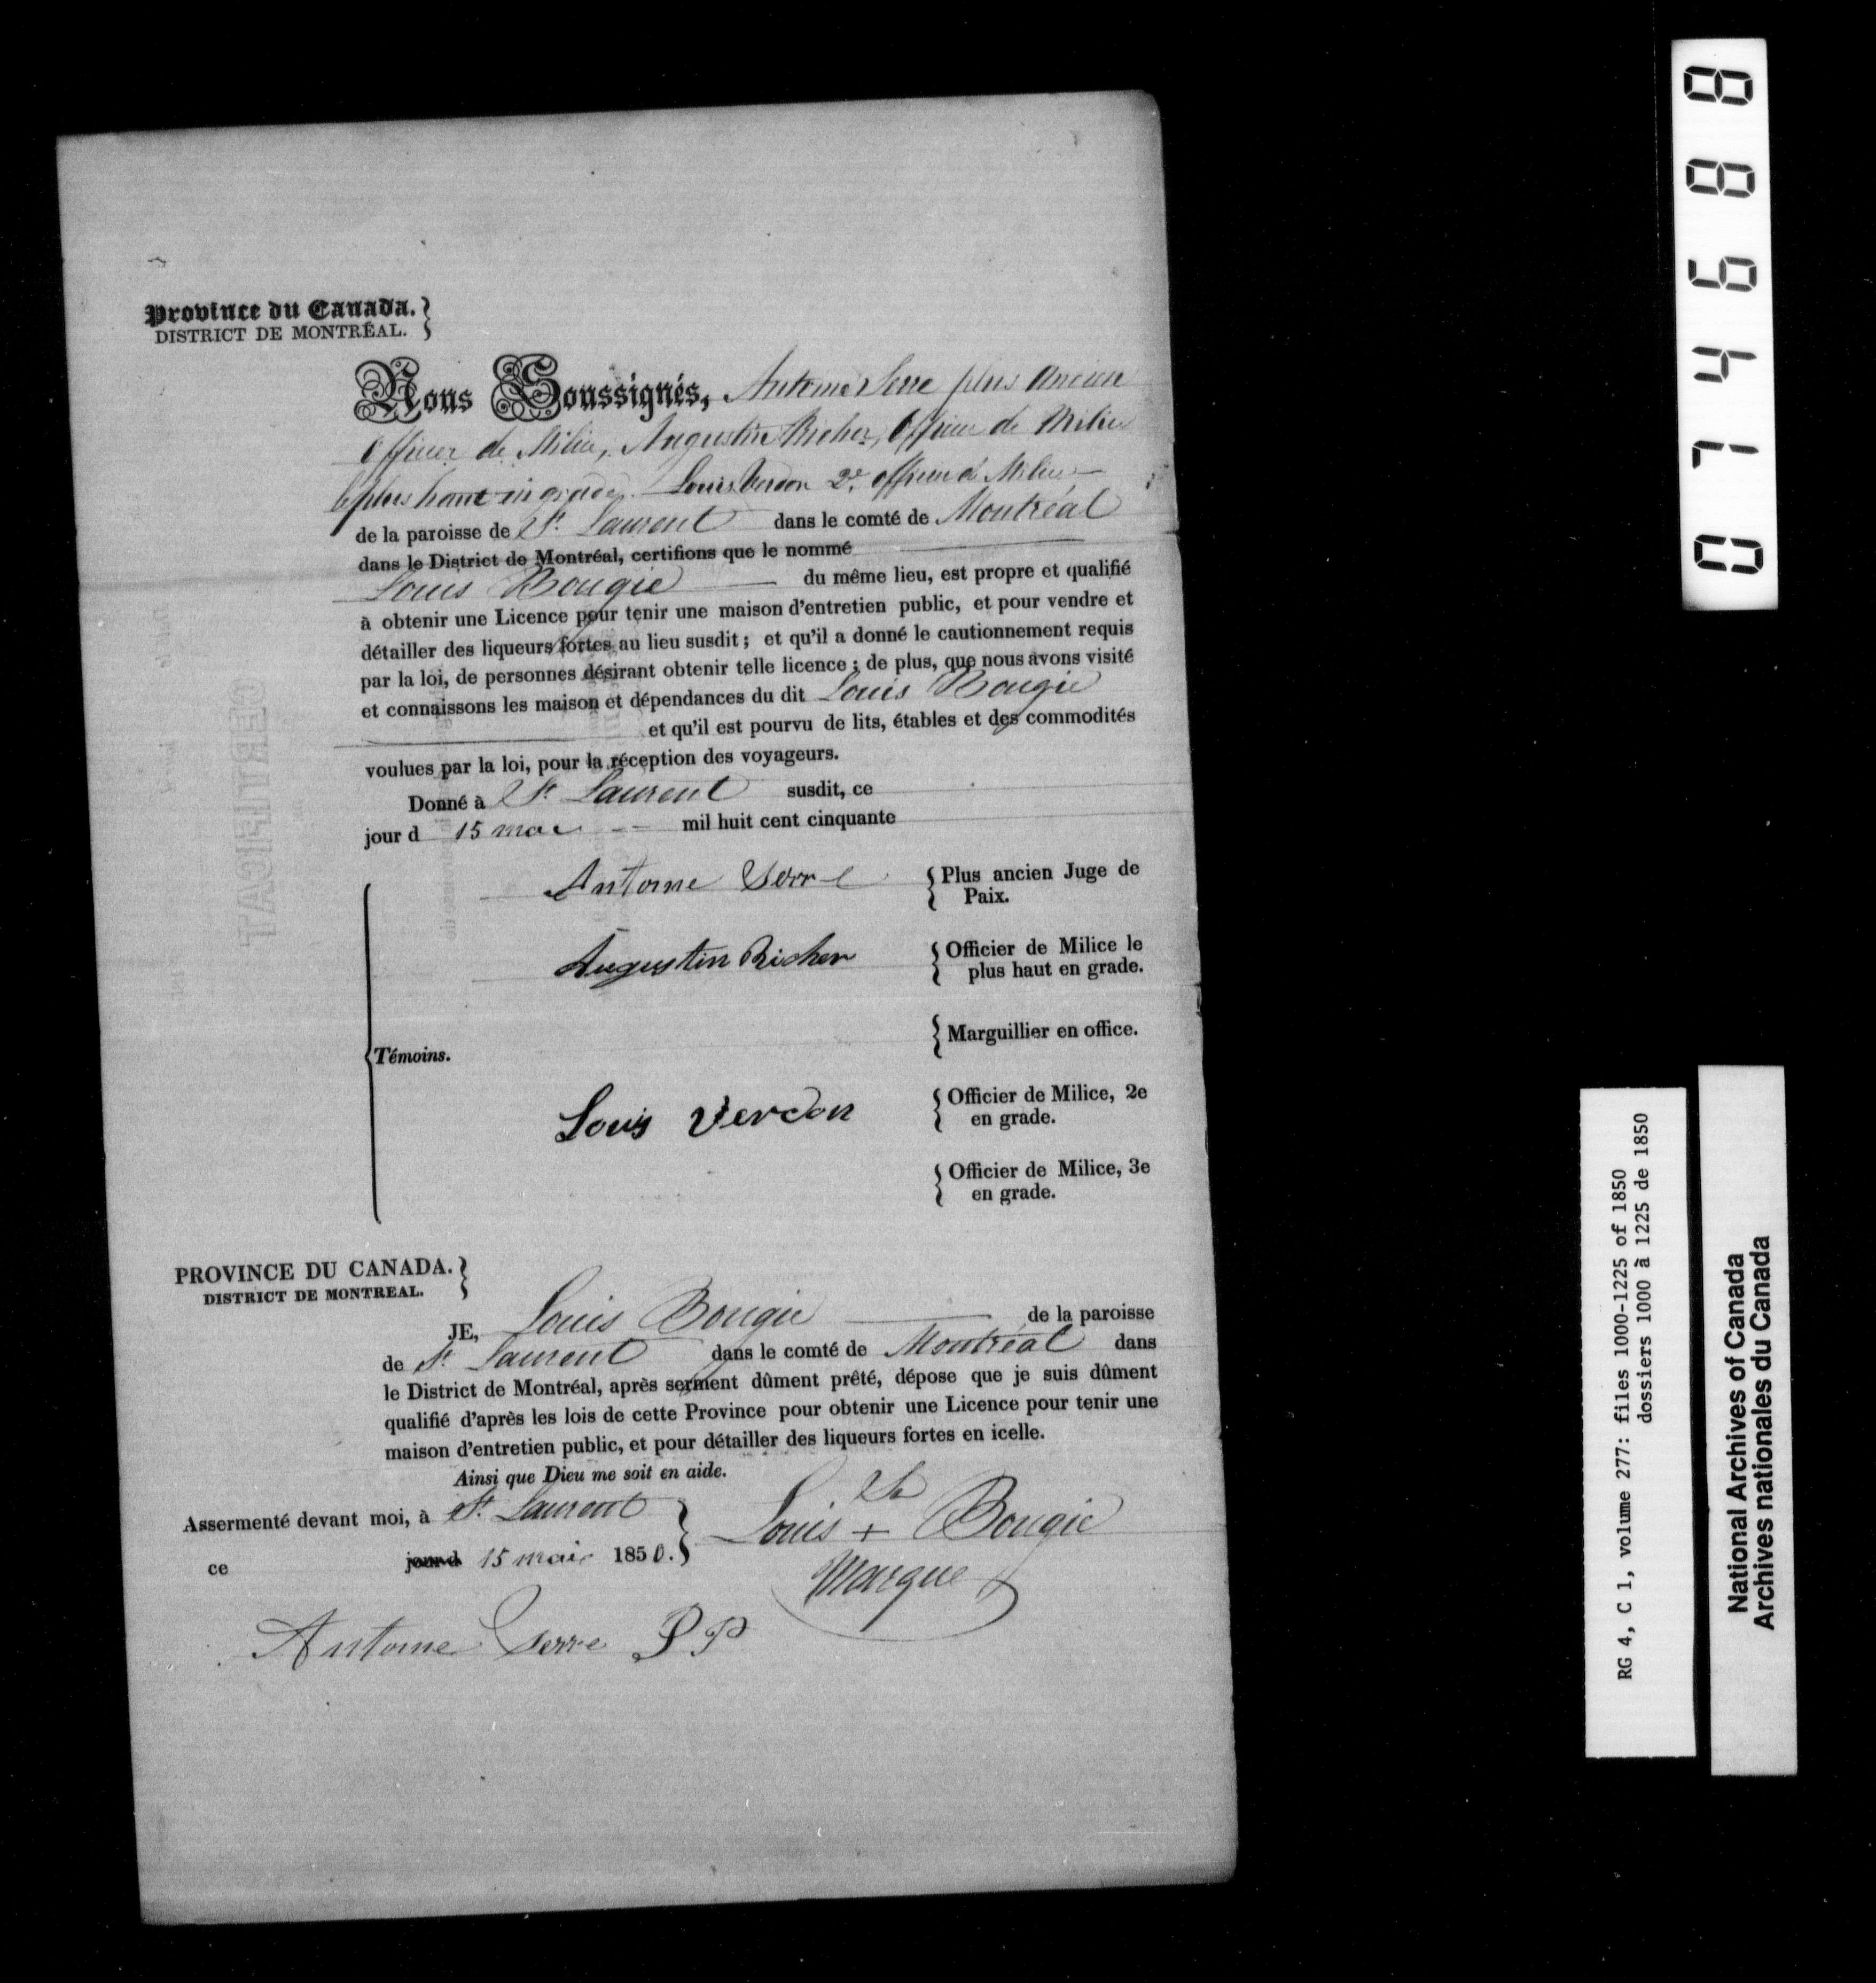 Province du Canada.
DISTRICT DE MONTRÉAL.
Nous Soussignés, Antoine Serre plus ancien
Officier de Milice, Augustin Richer, Officier de Milice
le plus haut en grade, Louis Verdon 2e. officier de Milice
de la paroisse de St. Laurent dans le comté de Montréal
dans le District de Montréal, certifions que le nommé
Louis Bougie du même lieu, est propre et qualifié
à obtenir une Licence pour tenir une maison d'entretien public, et pour vendre et
détailler des liqueurs fortes au lieu susdit; et qu'il a donné le cautionnement requis
par la loi, de personnes désirant obtenir telle licence; de plus, que nous avons visité
et connaissons les maison et dépendances du dit Louis Bougie
et qu'il est pourvu de lits, étables et des commodités
voulues par la loi, pour la réception des voyageurs.
Donné à St. Laurent susdit, ce
jour d 15 mai mil huit cent cinquante
Antoine Serre Plus ancien Juge de
Paix.
Augustin Richer Officier de Milice le
plus haut en grade.
Marguillier en office.
Témoins.
Louis Verdon Officier de Milice, 2e
en grade.
Officier de Milice, 3e
en grade.
PROVINCE DU CANADA.
DISTRICT DE MONTREAL.
JE, Louis Bougie de la paroisse
de St. Laurent dans le comté de Montréal dans
le District de Montréal, après serment dûment prêté, dépose que je suis dûment
qualifié d'après les lois de cette Province pour obtenir une Licence pour tenir une
maison d'entretien public, et pour détailler des liqueurs fortes en icelle.
Ainsi que Dieu me soit en aide.
Assermenté devant moi, à St. Laurent
ce jour d 15 mai 1850.
Sa
Louis + Bougie
Marque
Antoine Serre
074688
RG 4, C 1, volume 277: files 1000-1225 of 1850
dossiers 1000 à 1225 de 1850
National Archives of Canada
Archives nationales du Canada